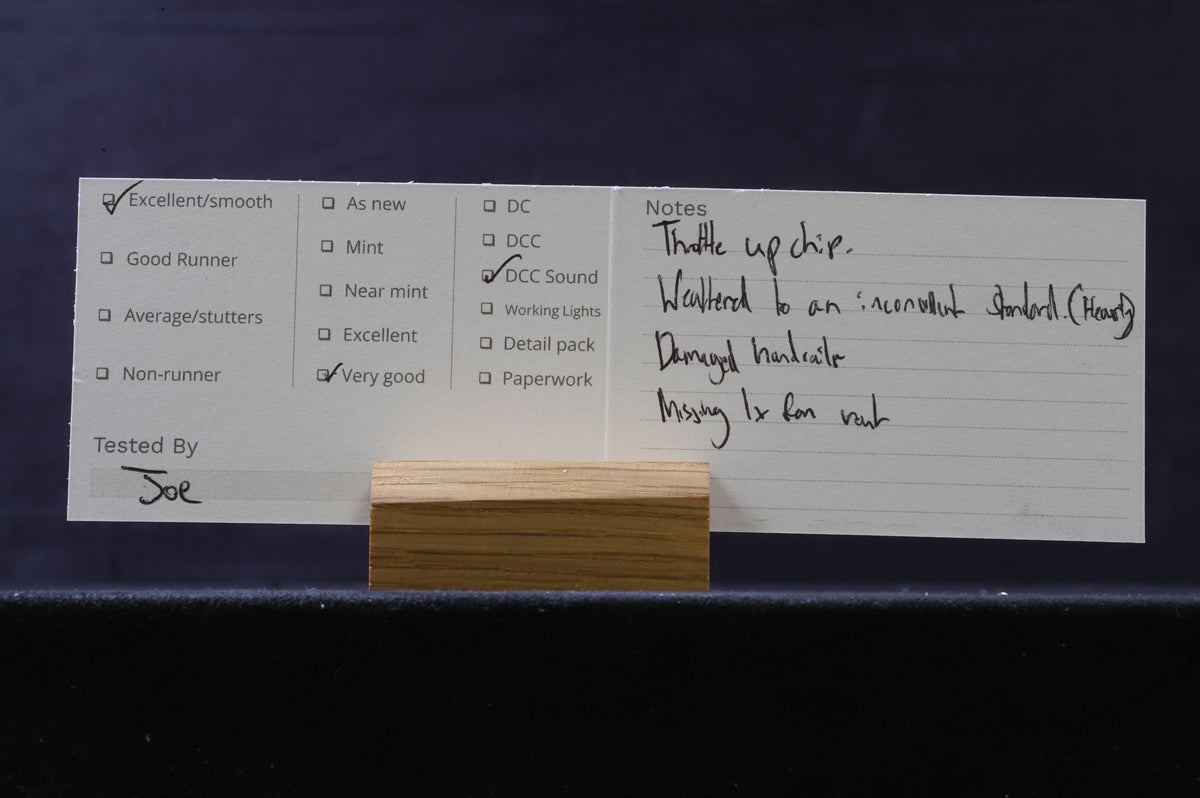 Excellent/smooth
Good Runner
Average/stutters
Non-runner
As new
Mint
Near mint
Excellent
Very good
DC
DCC
DCC Sound
Working Lights
Detail pack
Paperwork
Tested By
Joe
Notes
Throttle up chip.
Weathered to an standard. (Heavy)
Damaged handrails
Missing 1x fan vent